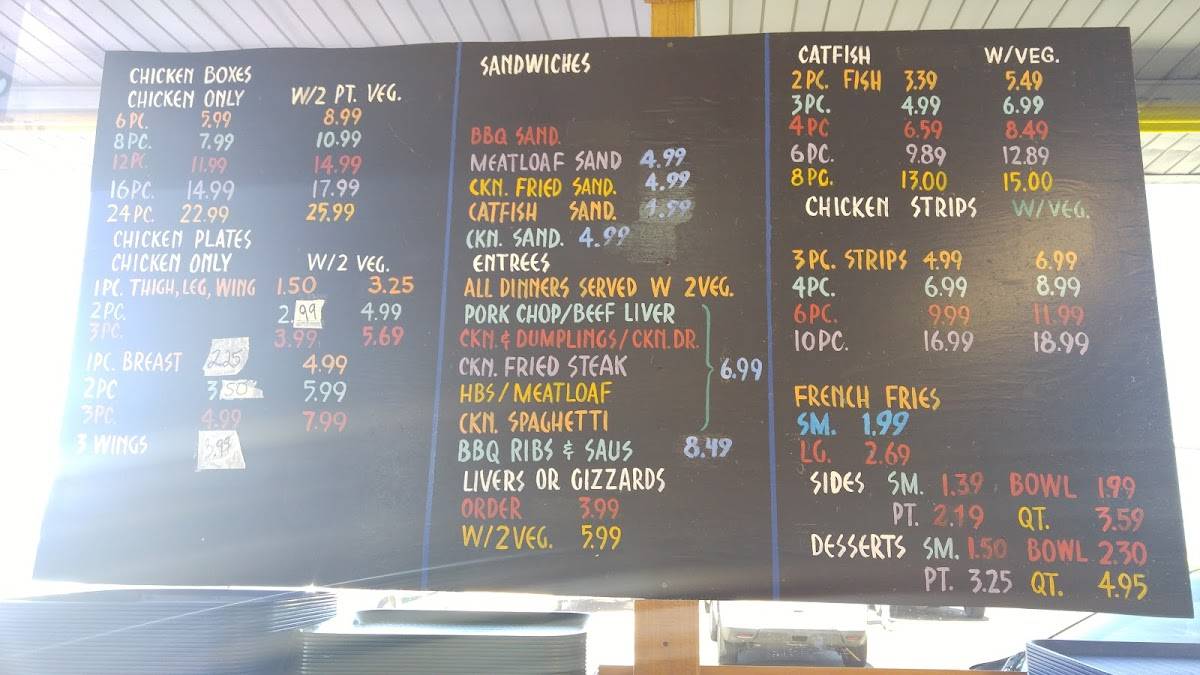 CHICKEN BOXES
CHICKEN ONLY W/2 PT. VEG.
6 PC. 5.99 8.99
8 PC. 7.99 10.99
12 PC. 11.99 14.99
16 PC. 14.99 17.99
24 PC. 22.99 25.99
CHICKEN PLATES
CHICKEN ONLY W/2 VEG.
1 PC. THIGH, LEG, WING 1.50 3.25
2 PC. 2.99 4.99
3 PC. 3.99 5.69
1 PC. BREAST 2.25 4.99
2 PC 3.50 5.99
3 PC. 4.99 7.99
3 WINGS 3.99
SANDWICHES
BBQ SAND.
MEATLOAF SAND 4.99
CKN. FRIED SAND. 4.99
CATFISH SAND. 4.99
CKN. SAND. 4.99
ENTREES
ALL DINNERS SERVED W 2 VEG.
PORK CHOP/BEEF LIVER
CKN. & DUMPLINGS/CKN. DR.
CKN. FRIED STEAK 6.99
HBS/MEATLOAF
CKN. SPAGHETTI
BBQ RIBS & SAUS 8.49
LIVERS OR GIZZARDS
ORDER 3.99
W/2 VEG. 5.99
CATFISH W/VEG.
2 PC. FISH 3.39 5.49
3 PC. 4.99 6.99
4 PC 6.59 8.49
6 PC. 9.89 12.89
8 PC. 13.00 15.00
CHICKEN STRIPS W/VEG.
3 PC. STRIPS 4.99 6.99
4 PC. 6.99 8.99
6 PC. 9.99 11.99
10 PC. 16.99 18.99
FRENCH FRIES
SM. 1.99
LG. 2.69
SIDES SM. 1.39 BOWL 1.99
PT. 2.19 QT. 3.59
DESSERTS SM. 1.50 BOWL 2.30
PT. 3.25 QT. 4.95